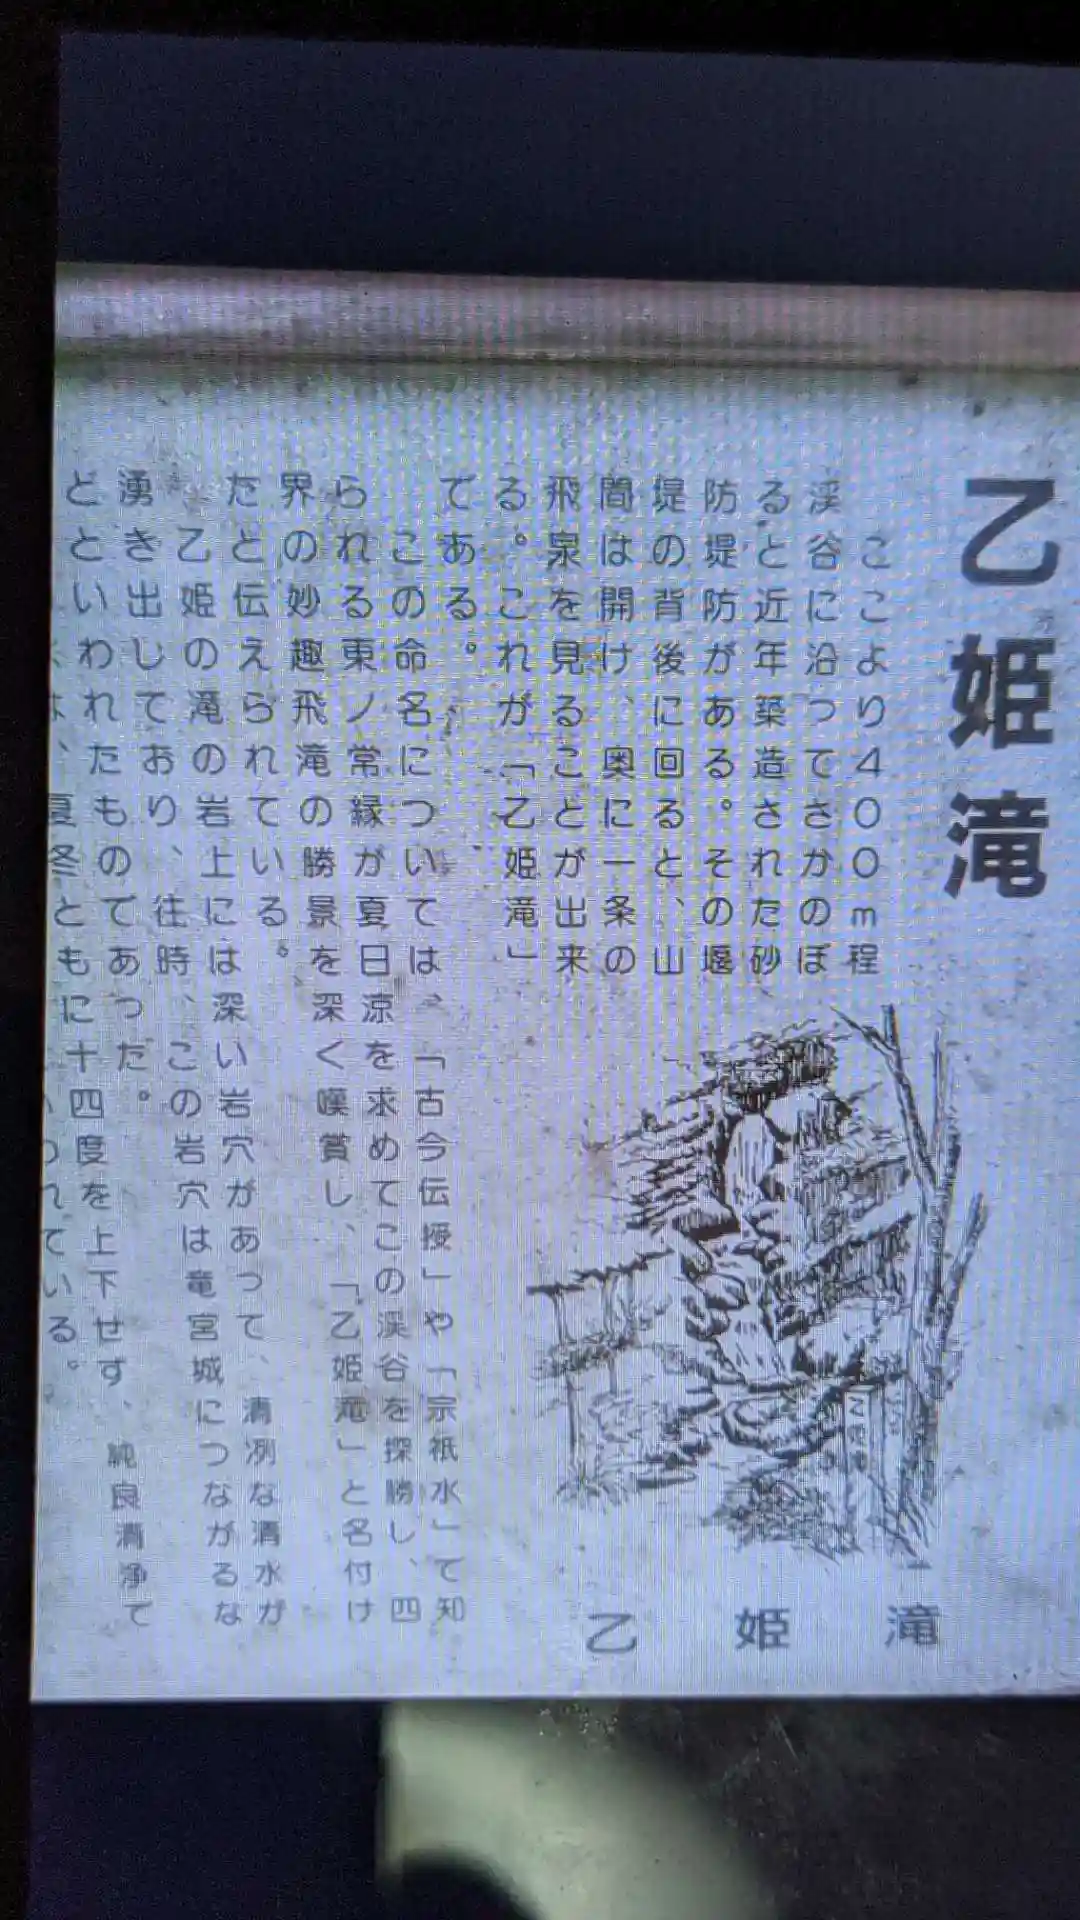 乙姫滝
ここより400m程
渓谷に沿ってさかのぼ
ると近年築造された砂
防堤防がある。その堰
堤の背後に回ると、山
間は開け、奥に一条の
飛泉を見ることが出来
る。これが「乙姫滝」
である。
この命名については、「古今伝授」や「宗祇水」で知
られる東ノ常縁が夏日涼を求めてこの渓谷を探勝し、四
界の妙趣飛滝の勝景を深く嘆賞し、「乙姫滝」と名付け
たと伝えられている。
乙姫の滝の岩上には深い岩穴があって、清冽な清水が
湧き出しており、往時、この岩穴は竜宮城につながるな
どといわれたものであった。
は、夏冬ともに十四度を上下せず、純良清浄で
われている。
乙姫滝